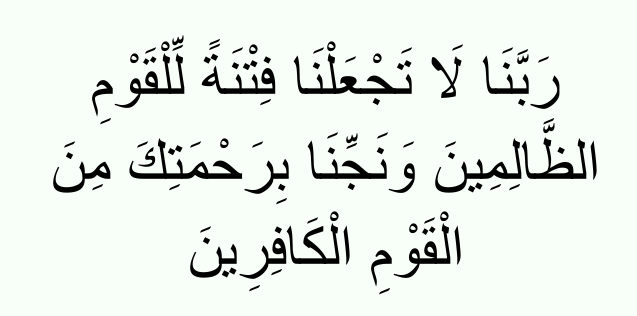 رَبَّنَا لَا تَجْعَلْنَا فِتْنَةً لِّلْقَوْمِ
الظَّالِمِينَ وَنَجِّنَا بِرَحْمَتِكَ مِنَ
الْقَوْمِ الْكَافِرِينَ